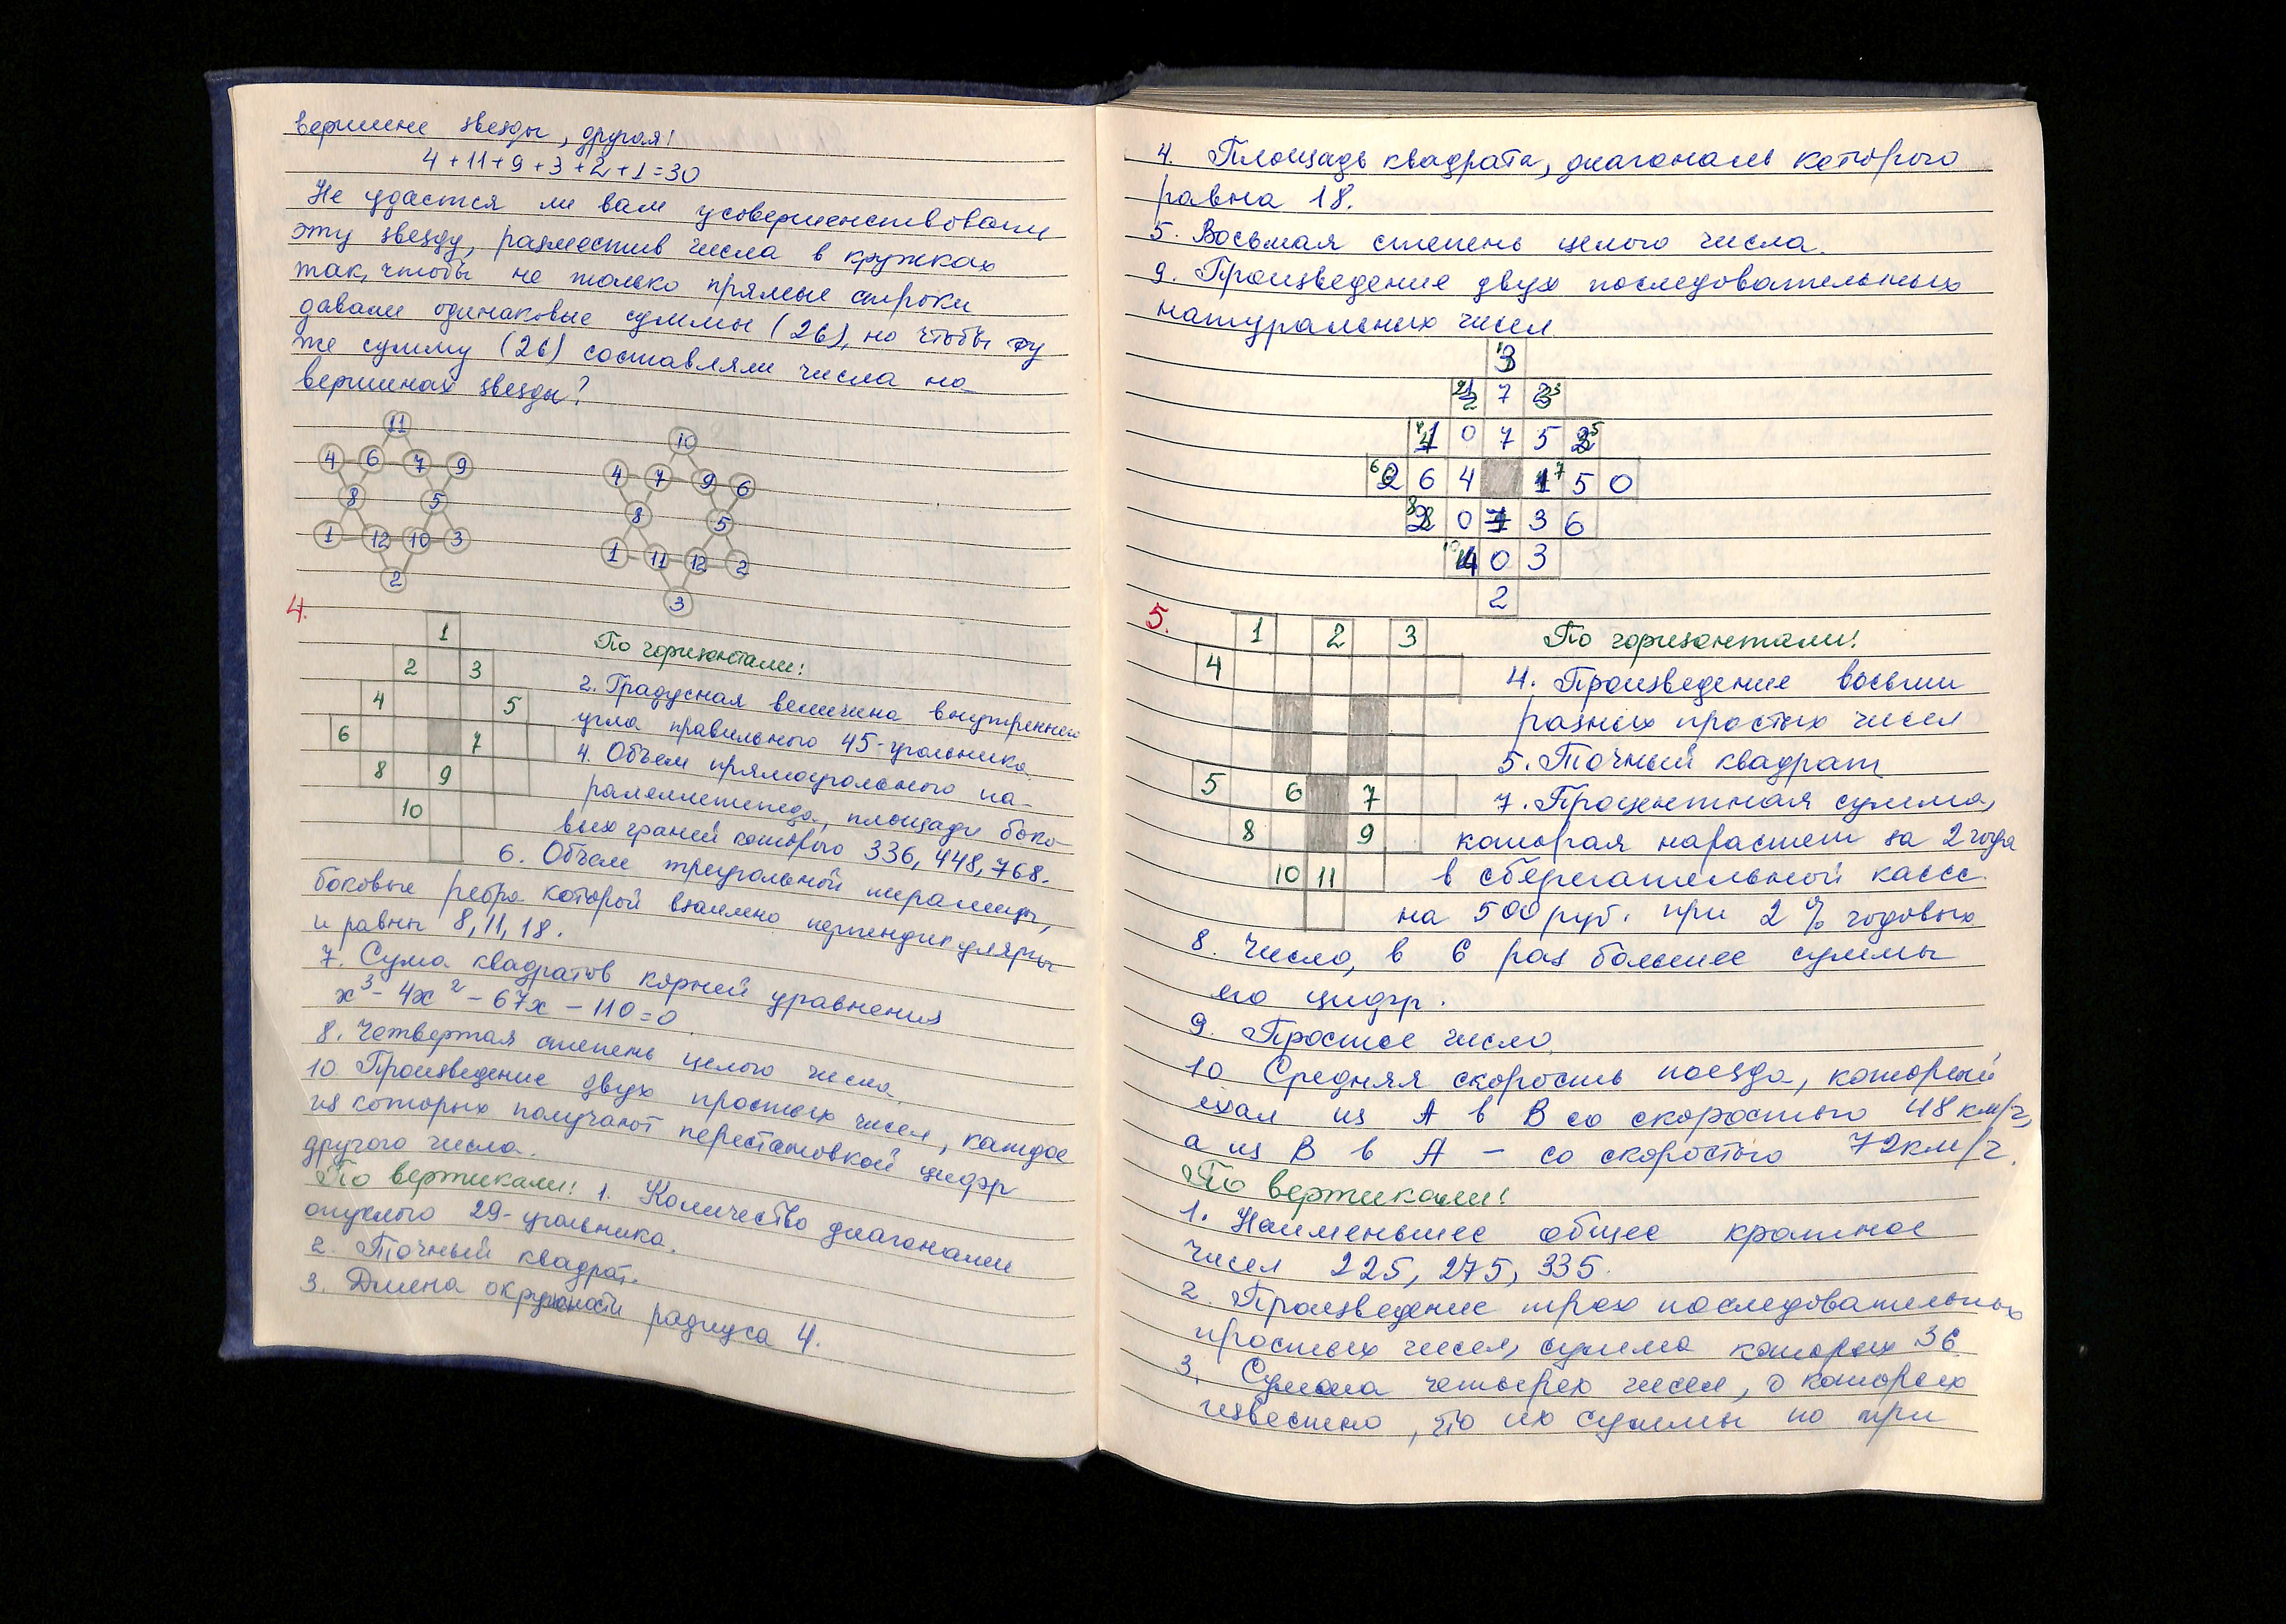 вершине звезды, другая!
4 + 11 + 9 + 3 + 2 + 1 = 30
Не удастся ли вам усовершенствовать
эту звезду, разместив числа в кружках
так, чтобы не только прямые строки
давали одинаковые суммы (26), но чтобы ту
же сумму (26) составляли числа на
вершинах звезды?
11
4 6 7 9
8 5
1 12 10 3
2
10
4 7 9 6
8 5
1 11 12 2
3
4.
1
2 3
4 5
6 7
8 9
10
По горизонтали:
2. Градусная величина внутреннего
угла правильного 45-угольника.
4. Объем прямоугольного па-
ралеллепипеда, площади боко-
вых граней которого 336, 448, 768.
6. Объем треугольной пирамиды,
боковые ребра которой взаимно перпендикулярны
и равны 8, 11, 18.
7. Сума квадратов корней уравнения
x³ - 4x² - 67x - 110 = 0.
8. Четвертая степень целого числа.
10. Произведение двух простых чисел, каждое
из которых получают перестановкой цифр
другого числа.
По вертикали: 1. Количество диагоналей
опуклого 29-угольника.
2. Точный квадрат.
3. Длина окружности радиуса 4.
4. Площадь квадрата, диагональ которого
равна 18.
5. Восьмая степень целого числа.
9. Произведение двух последовательных
натуральных чисел.
3
7
0 7 5
6 4 5 0
0 3 6
4 0 3
2
5.
1 2 3
4
5 6 7
8 9
10 11
По горизонтали:
4. Произведение восьми
разных простых чисел
5. Точный квадрат
7. Процентная сумма,
которая нарастет за 2 года
в сберегательной кассе
на 500 руб. при 2 % годовых.
8. Число, в 6 раз большее суммы
его цифр.
9. Простое число.
10 Средняя скорость поезда, который
ехал из А в В со скоростью 48 км/ч,
а из В в А – со скоростью 72 км/ч.
По вертикали:
1. Наименьшее общее кратное
чисел 225, 275, 335.
2. Произведение трех последовательных
простых чисел, сумма которых 36
3. Сумма четырех чисел, о которых
известно, что их суммы по три